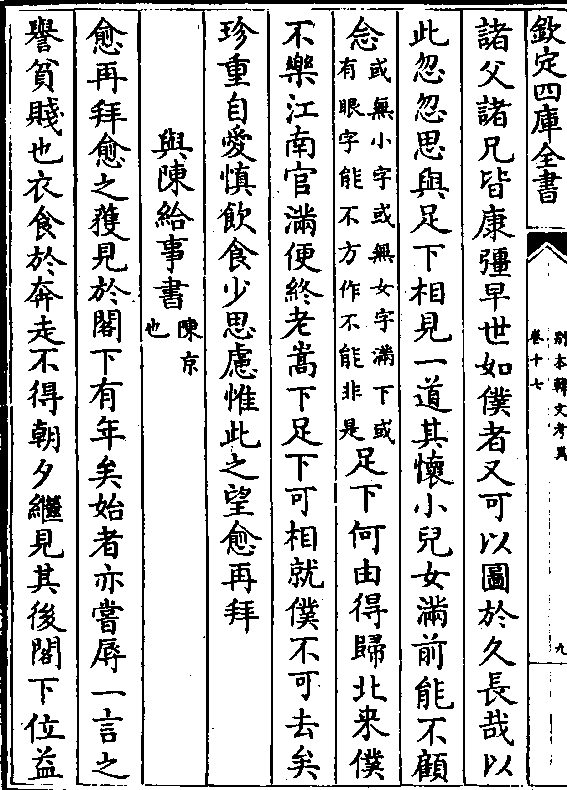 欽定四庫全書
別本韓文考異
卷十七
九
諸父諸兄皆康彊早世如僕者又可以圖於久長哉以
此忽忽思與足下相見一道其懷小兒女滿前能不顧
念或無小字或無女字滿下或有眼字能不方作不能非是足下何由得歸北来僕
不樂江南官滿便終老嵩下足下可相就僕不可去矣
珍重自愛慎飲食少思慮惟此之望愈再拜
與陳給事書陳京也
愈再拜愈之獲見於閣下有年矣始者亦嘗辱一言之
譽貧賤也衣食於奔走不得朝夕繼見其後閣下位益